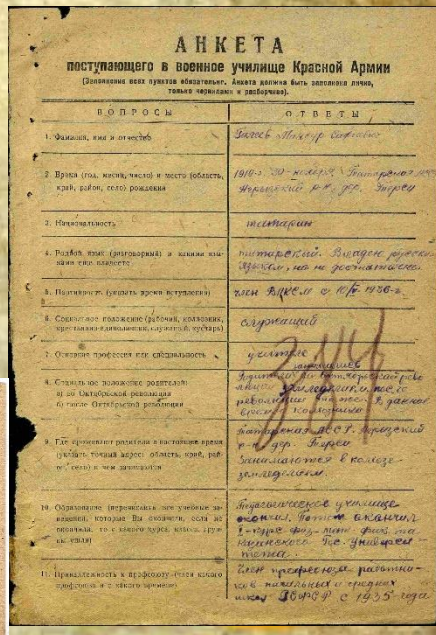 АНКЕТА
поступающего в военное училище Красной Армии
(Заполнение всех пунктов обязательно. Анкета должна быть заполнена лично,
только чернилами и разборчиво).
ВОПРОСЫ
ОТВЕТЫ
1. Фамилия, имя и отчество
2. Время (год, месяц, число) и место (область,
край, район, село) рождения
1916 г. 30 ноября, Татарская
р-н, дер.
3. Национальность
татарин
4. Родной язык (разговорный) и какими язы-
ками еще владеете
татарский. Владею русским
языком, но не достаточно
5. Партийность (указать время вступления)
член ВЛКСМ с 1936 г.
6. Социальное положение (рабочий, колхозник,
крестьянин-единоличник, служащий, кустарь)
служащий
7. Основная профессия или специальность
учитель
8. Социальное положение родителей:
а) до Октябрьской революции
б) после Октябрьской революции
Родители до Октябрьской рево-
люции земледелием, после
революции
время колхозники
9. Где проживают родители в настоящее время
(указать точный адрес: область, край, рай-
он, село) и чем занимаются
Татарская АССР,
р-н дер.
Занимаются в колхозе
земледелием.
10. Образование (перечислить все учебные за-
ведения, которые Вы окончили, если не
окончили, то с какого курса, класса, груп-
пы ушли)
Педагогическое училище
окончил. Потом окончил
курс физ-мат. фак-та
Казанского Гос. Универси-
тета.
11. Принадлежность к профсоюзу (член какого
профсоюза и с какого времени)
Член профсоюза работни-
ков начальных и средних
школ РСФСР с 1935 года